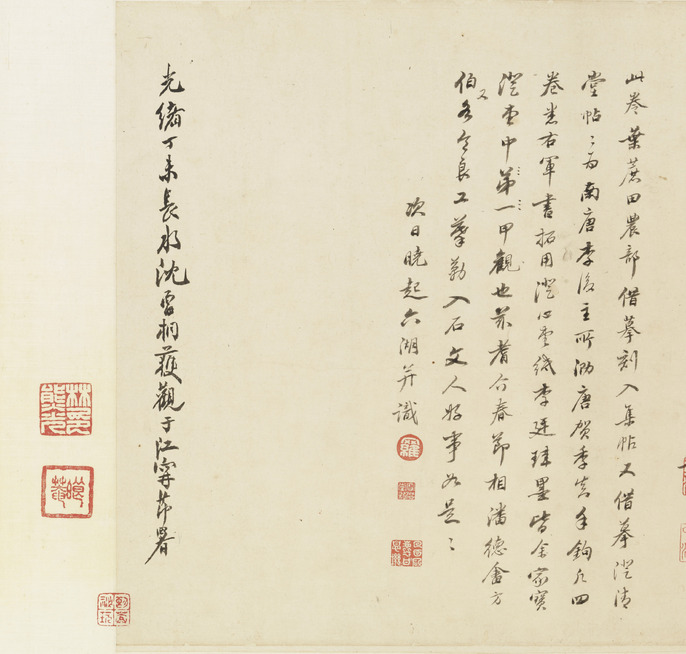 此卷葉蔗田農部借摹刻入集帖又借摹澄清
堂帖〻為南唐李後主所泐唐賀季真手鉤凡四
卷悉右軍書拓用澄心堂紙李廷珪墨皆余家寶
澄中第一甲觀也者今春節相潘德畬方
伯又各令良工摹勒入石文人好事如是〻
次日曉起六湖并識
羅
光緒丁未長水沈曾桐獲觀于江甯節署